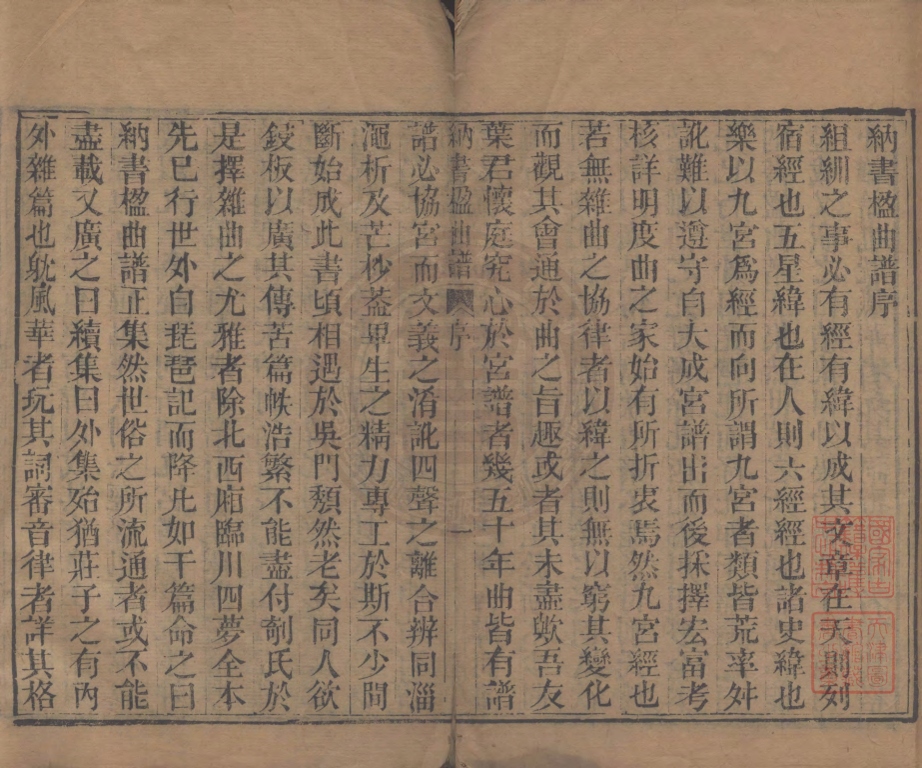 納書楹曲譜序
組紃之事必有經有緯以成其文章在天則列
宿經也五星緯也在人則六經經也諸史緯也
樂以九宮爲經而向所謂九宮者類皆荒率舛
訛難以遵守自大成宮譜出而後採擇宏富考
核詳明度曲之家始有所折衷焉然九宮經也
若無雜曲之協律者以緯之則無以窮其變化
而觀其會通於曲之旨趣或者其未盡歟吾友
葉君懷庭究心於宮譜者幾五十年曲皆有譜
納書楹曲譜 序 一
譜必協宮而文義之淆訛四聲之離合辨同淄
澠析及芒杪葢畢生之精力專工於斯不少間
斷始成此書頃相遇於吳門頽然老矣同人欲
鋟板以廣其傳苦篇帙浩繁不能盡付剞氏於
是擇雜曲之尤雅者除北西廂臨川四夢全本
先已行世外自琵琶記而降凡如干篇命之曰
納書楹曲譜正集然世俗之所流通者或不能
盡載又廣之曰續集曰外集始猶莊子之有內
外雜篇也躭風華者玩其詞審音律者詳其格